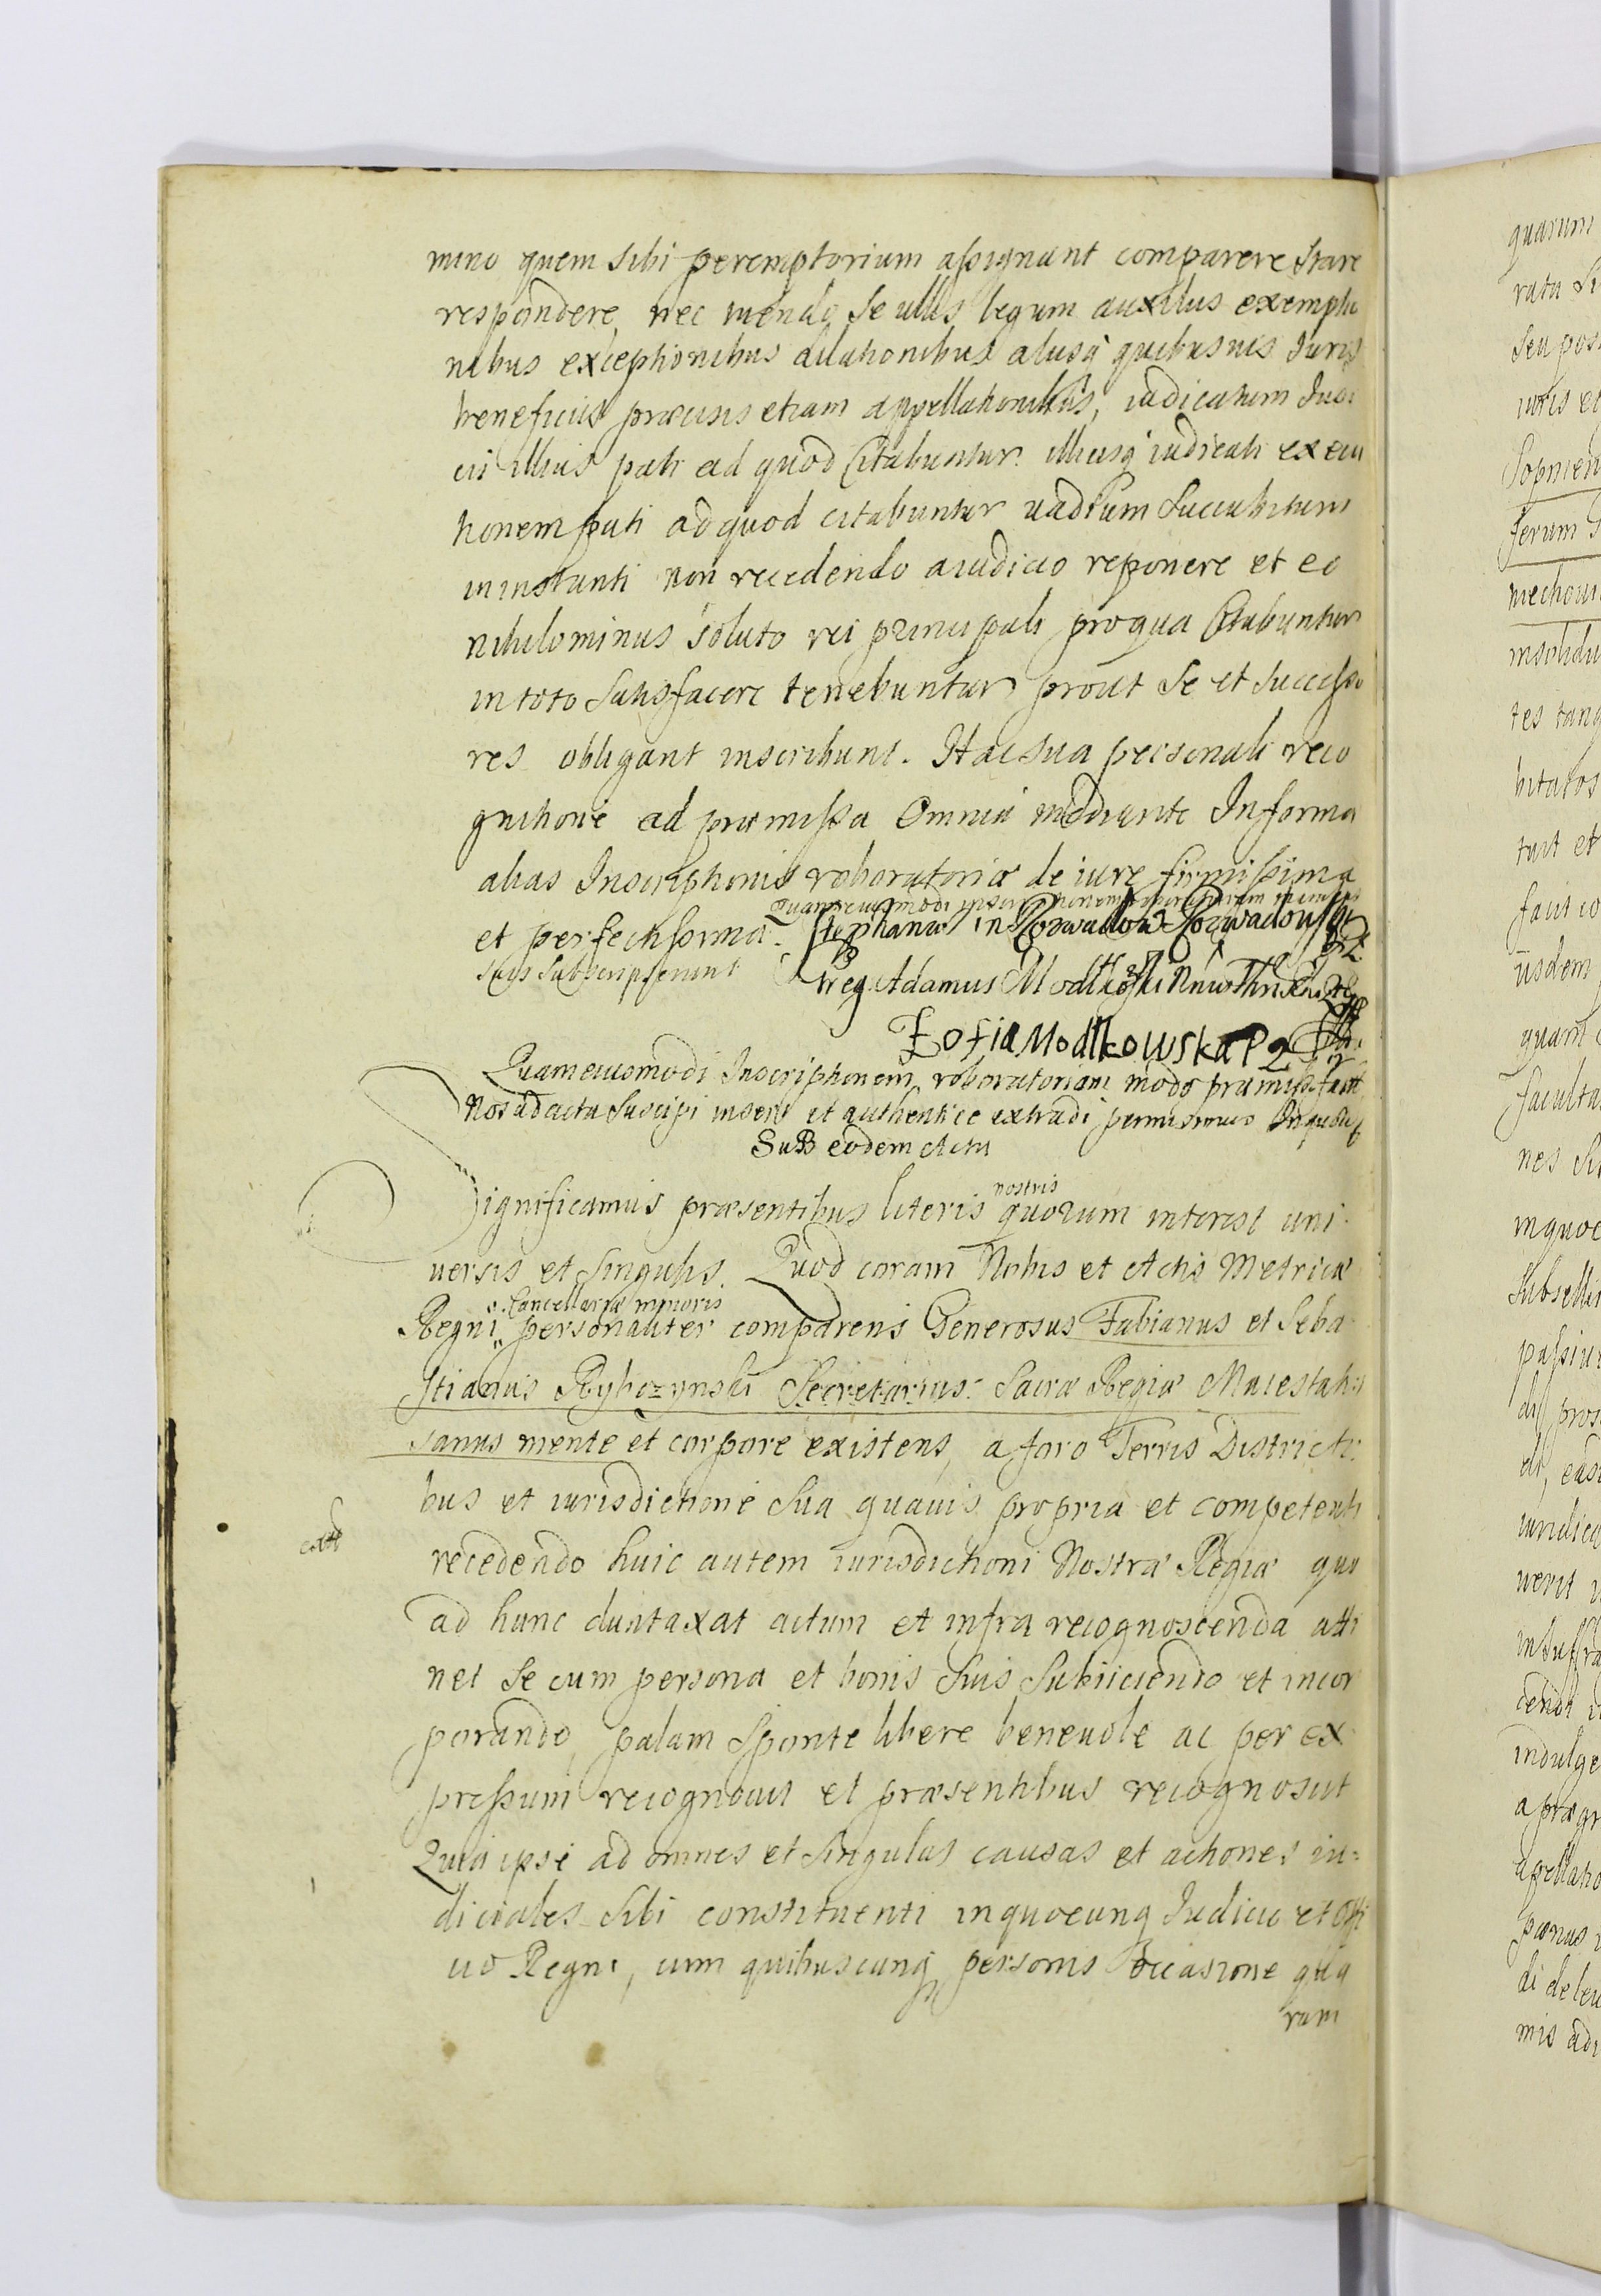 mino quem sibi peremptorium assignant comparere stare
respondere, nec tuendo se ullis legum auxiliis exemptio
nibus exceptionibus dilationibus aliisq quibusuis Iuris
beneficiis præcisis etiam appellationibus, iudicatum Iudi
cii illius pati ad quod citabuntur. illiusq iudicati execu
tionem pati ad quod citabuntur uadium succubitum
in instanti non recedendo a iudicio reponere et eo
nihilominus soluto rei principali pro qua citabuntur
in toto satisfacere tenebuntur prout se et successo
res obligant inscribunt. Hac sua personali reco
gnitione ad præmissa omnia mediante In forma
alias Inscriptionis roboratoriæ de iure firmissima
Quam eiusmodi inscriptionem roboratoriam
et perfectissima. Stephanus in
suis subscripserunt
Greg. Adamus Modlkoski
Zofia Modlkowska
Quam eiusmodi Inscriptionem roboratoriam modo præmisso fact
Nos ad acta suscipi inseri et authentice extradi permisimus In quoru
Sub eodem Actu
Significamus præsentibus literis nostris quorum interest uni
uersis et singulis. Quod coram Nobis et Actis Metricæ
Cancellariæ minoris
Regni personaliter comparens Generosus Fabianus et Seba
stianus Rybczynski Secretarius Sacræ Regiæ Maiestatis
sanus mente et corpore existens, a foro Terris Districti
bus et iurisdictione sua quauis propria et competenti
recedendo huic autem iurisdictioni Nostræ Regiæ quo
ad hunc duntaxat actum et infra recognoscenda atti
net se cum persona et bonis suis subiiciendo et incor
porando, palam sponte libere beneuole ac per ex
pressum recognouit et præsentibus recognoscit
Quia ipse ad omnes et singulas causas et actiones iu=
diciales sibi constituenti in quocunq Iudicio et offi
cio Regni, cum quibuscunq personis occasione qua
rum